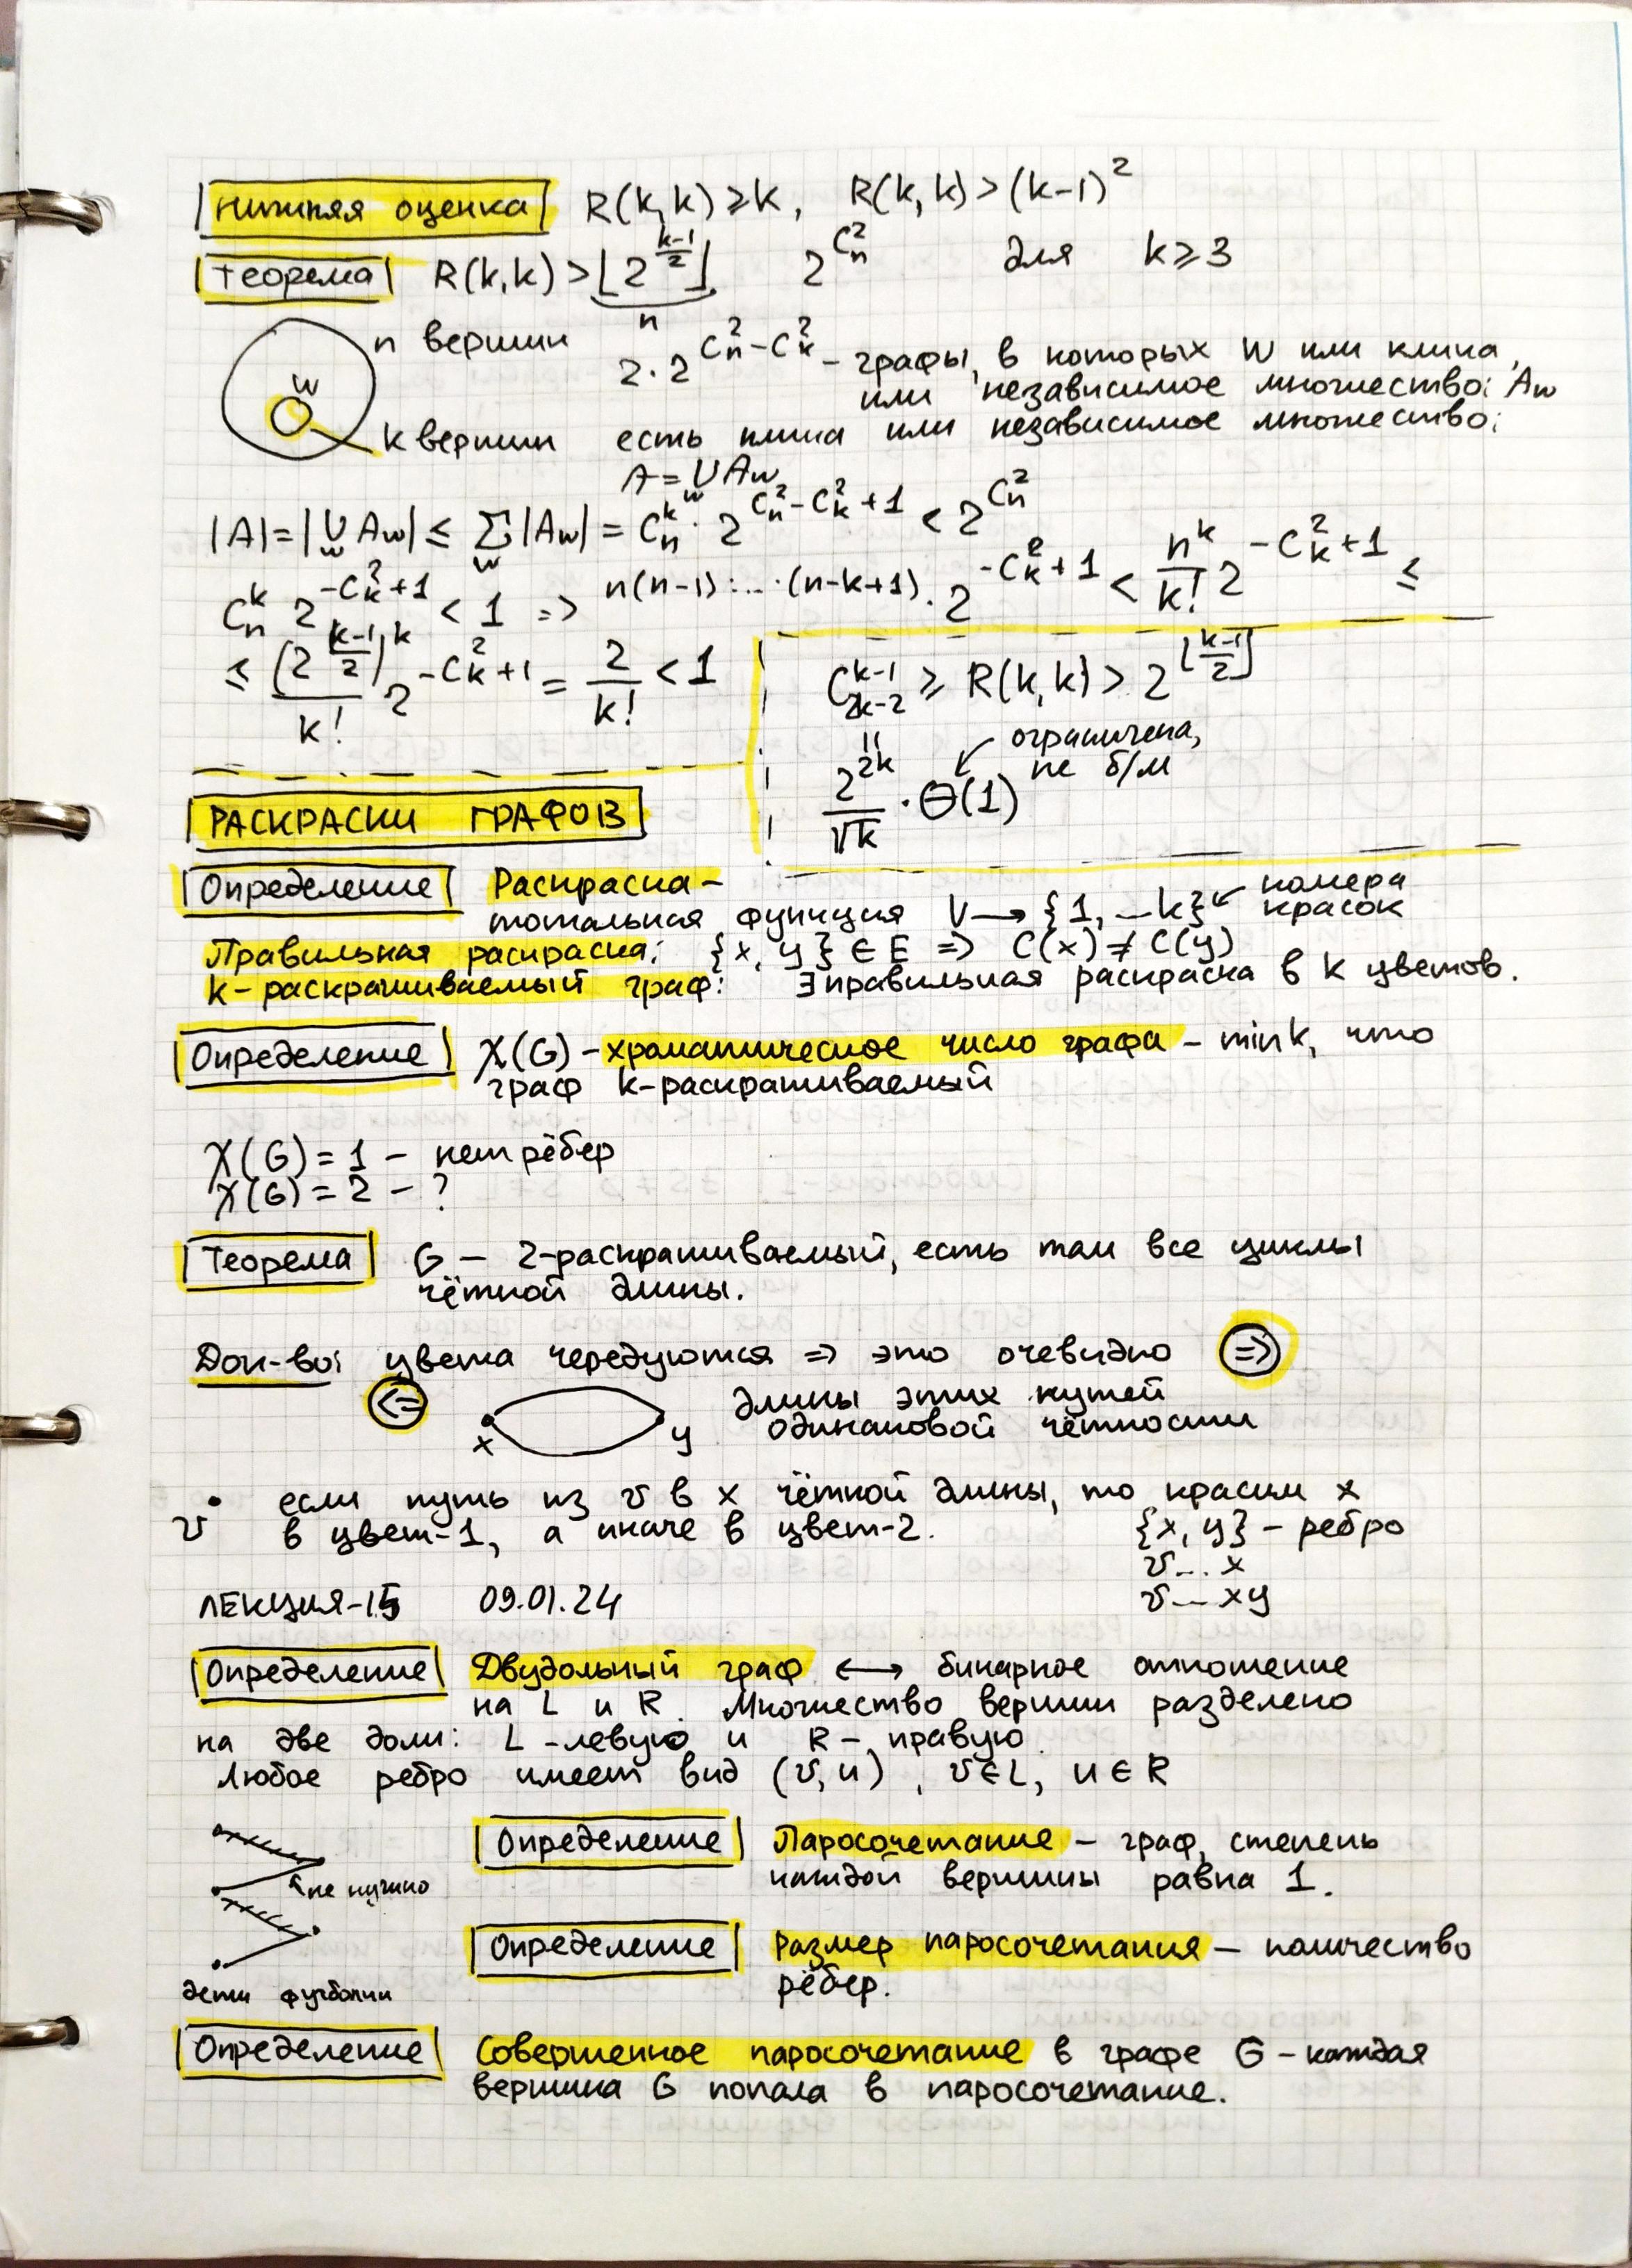 Нижняя оценка R(k,k) ≥ k, R(k,k) > (k-1)²
Теорема R(k,k) > ⌊2^{\frac{k-1}{2}}⌋ 2^{C_n^2} для k ≥ 3
n
n вершин
W
2·2^{C_n^2 - C_k^2} - графы, в которых W или клика,
или независимое множество: A_w
k вершин есть клика или независимое множество:
A = ⋃_w A_w
|A| = |⋃_w A_w| ≤ ∑_w |A_w| = C_n^k · 2^{C_n^2 - C_k^2 + 1} < 2^{C_n^2}
C_n^k 2^{-C_k^2 + 1} < 1 => n(n-1)·...·(n-k+1) · 2^{-C_k^2 + 1} < \frac{n^k}{k!} 2^{-C_k^2 + 1} ≤
≤ \frac{(2^{\frac{k-1}{2}})^k}{k!} 2^{-C_k^2 + 1} = \frac{2}{k!} < 1
C_{2k-2}^{k-1} ≥ R(k,k) > 2^{⌊\frac{k-1}{2}⌋}
=
\frac{2^{2k}}{√k} · Θ(1)
ограничена,
не б/м
РАСКРАСКИ ГРАФОВ
Определение Раскраска -
тотальная функция V → {1, ... k} ← номера
красок
Правильная раскраска: {x, y} ∈ E => C(x) ≠ C(y)
k-раскрашиваемый граф: ∃ правильная раскраска в k цветов.
Определение χ(G) - хроматическое число графа - min k, что
граф k-раскрашиваемый
χ(G) = 1 - нет рёбер
χ(G) = 2 - ?
Теорема G - 2-раскрашиваемый, есть там все циклы
чётной длины.
Док-во: цвета чередуются => это очевидно =>
<= x y длины этих путей
одинаковой чётности
v если путь из v в x чётной длины, то красим x
в цвет-1, а иначе в цвет-2. {x, y} - ребро
v... x
v... xy
ЛЕКЦИЯ-15 09.01.24
Определение Двудольный граф ⟷ бинарное отношение
на L и R. Множество вершин разделено
на две доли: L - левую и R - правую.
Любое ребро имеет вид (v, u), v ∈ L, u ∈ R
Определение Паросочетание - граф, степень
каждой вершины равна 1.
не нужно
Определение Размер паросочетания - количество
рёбер.
дети футболки
Определение Совершенное паросочетание в графе G - каждая
вершина G попала в паросочетание.